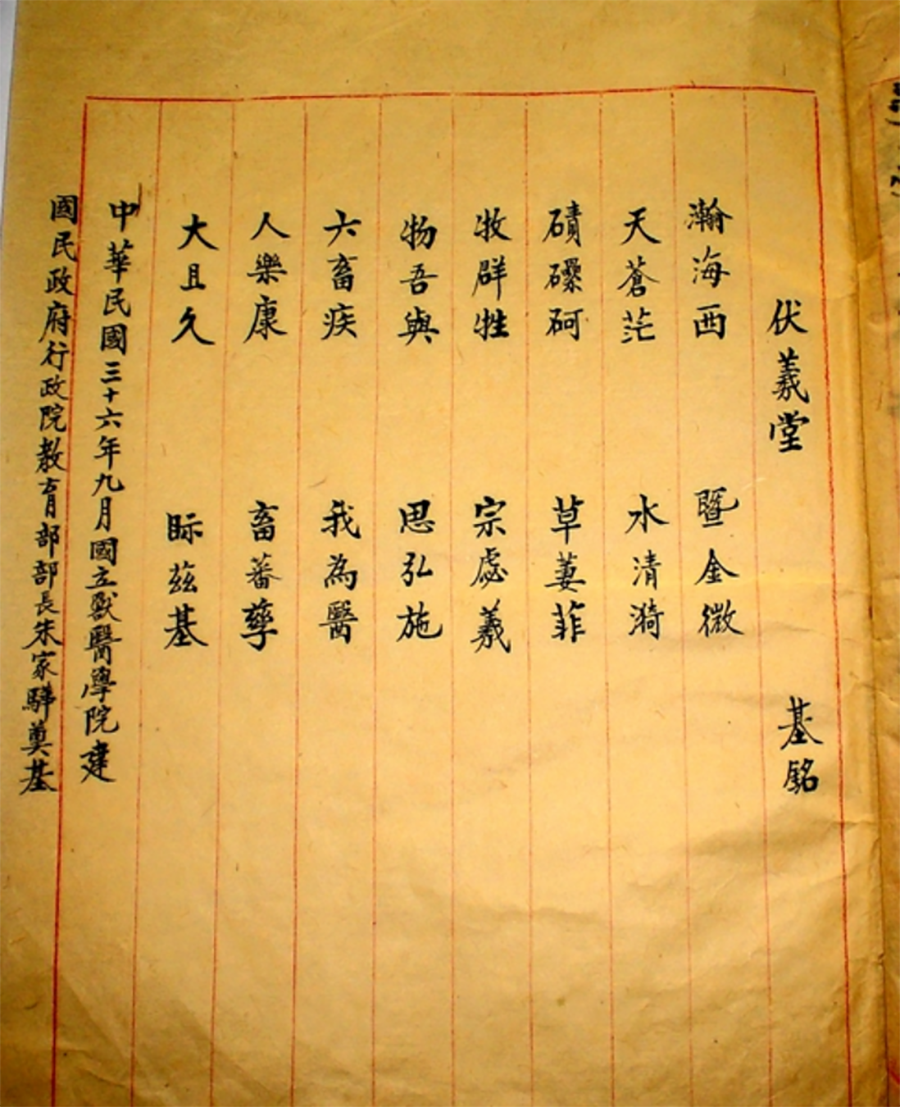 伏羲堂 基銘
瀚海西 暨金微
天蒼茫 水清漪
磧礫砢 草萋菲
牧群牲 宗虙羲
物吾與 思弘施
六畜疾 我為醫
人樂康 畜蕃孳
大且久 眎茲基
中華民國三十六年九月國立獸醫學院建
國民政府行政院教育部部長朱家驊奠基